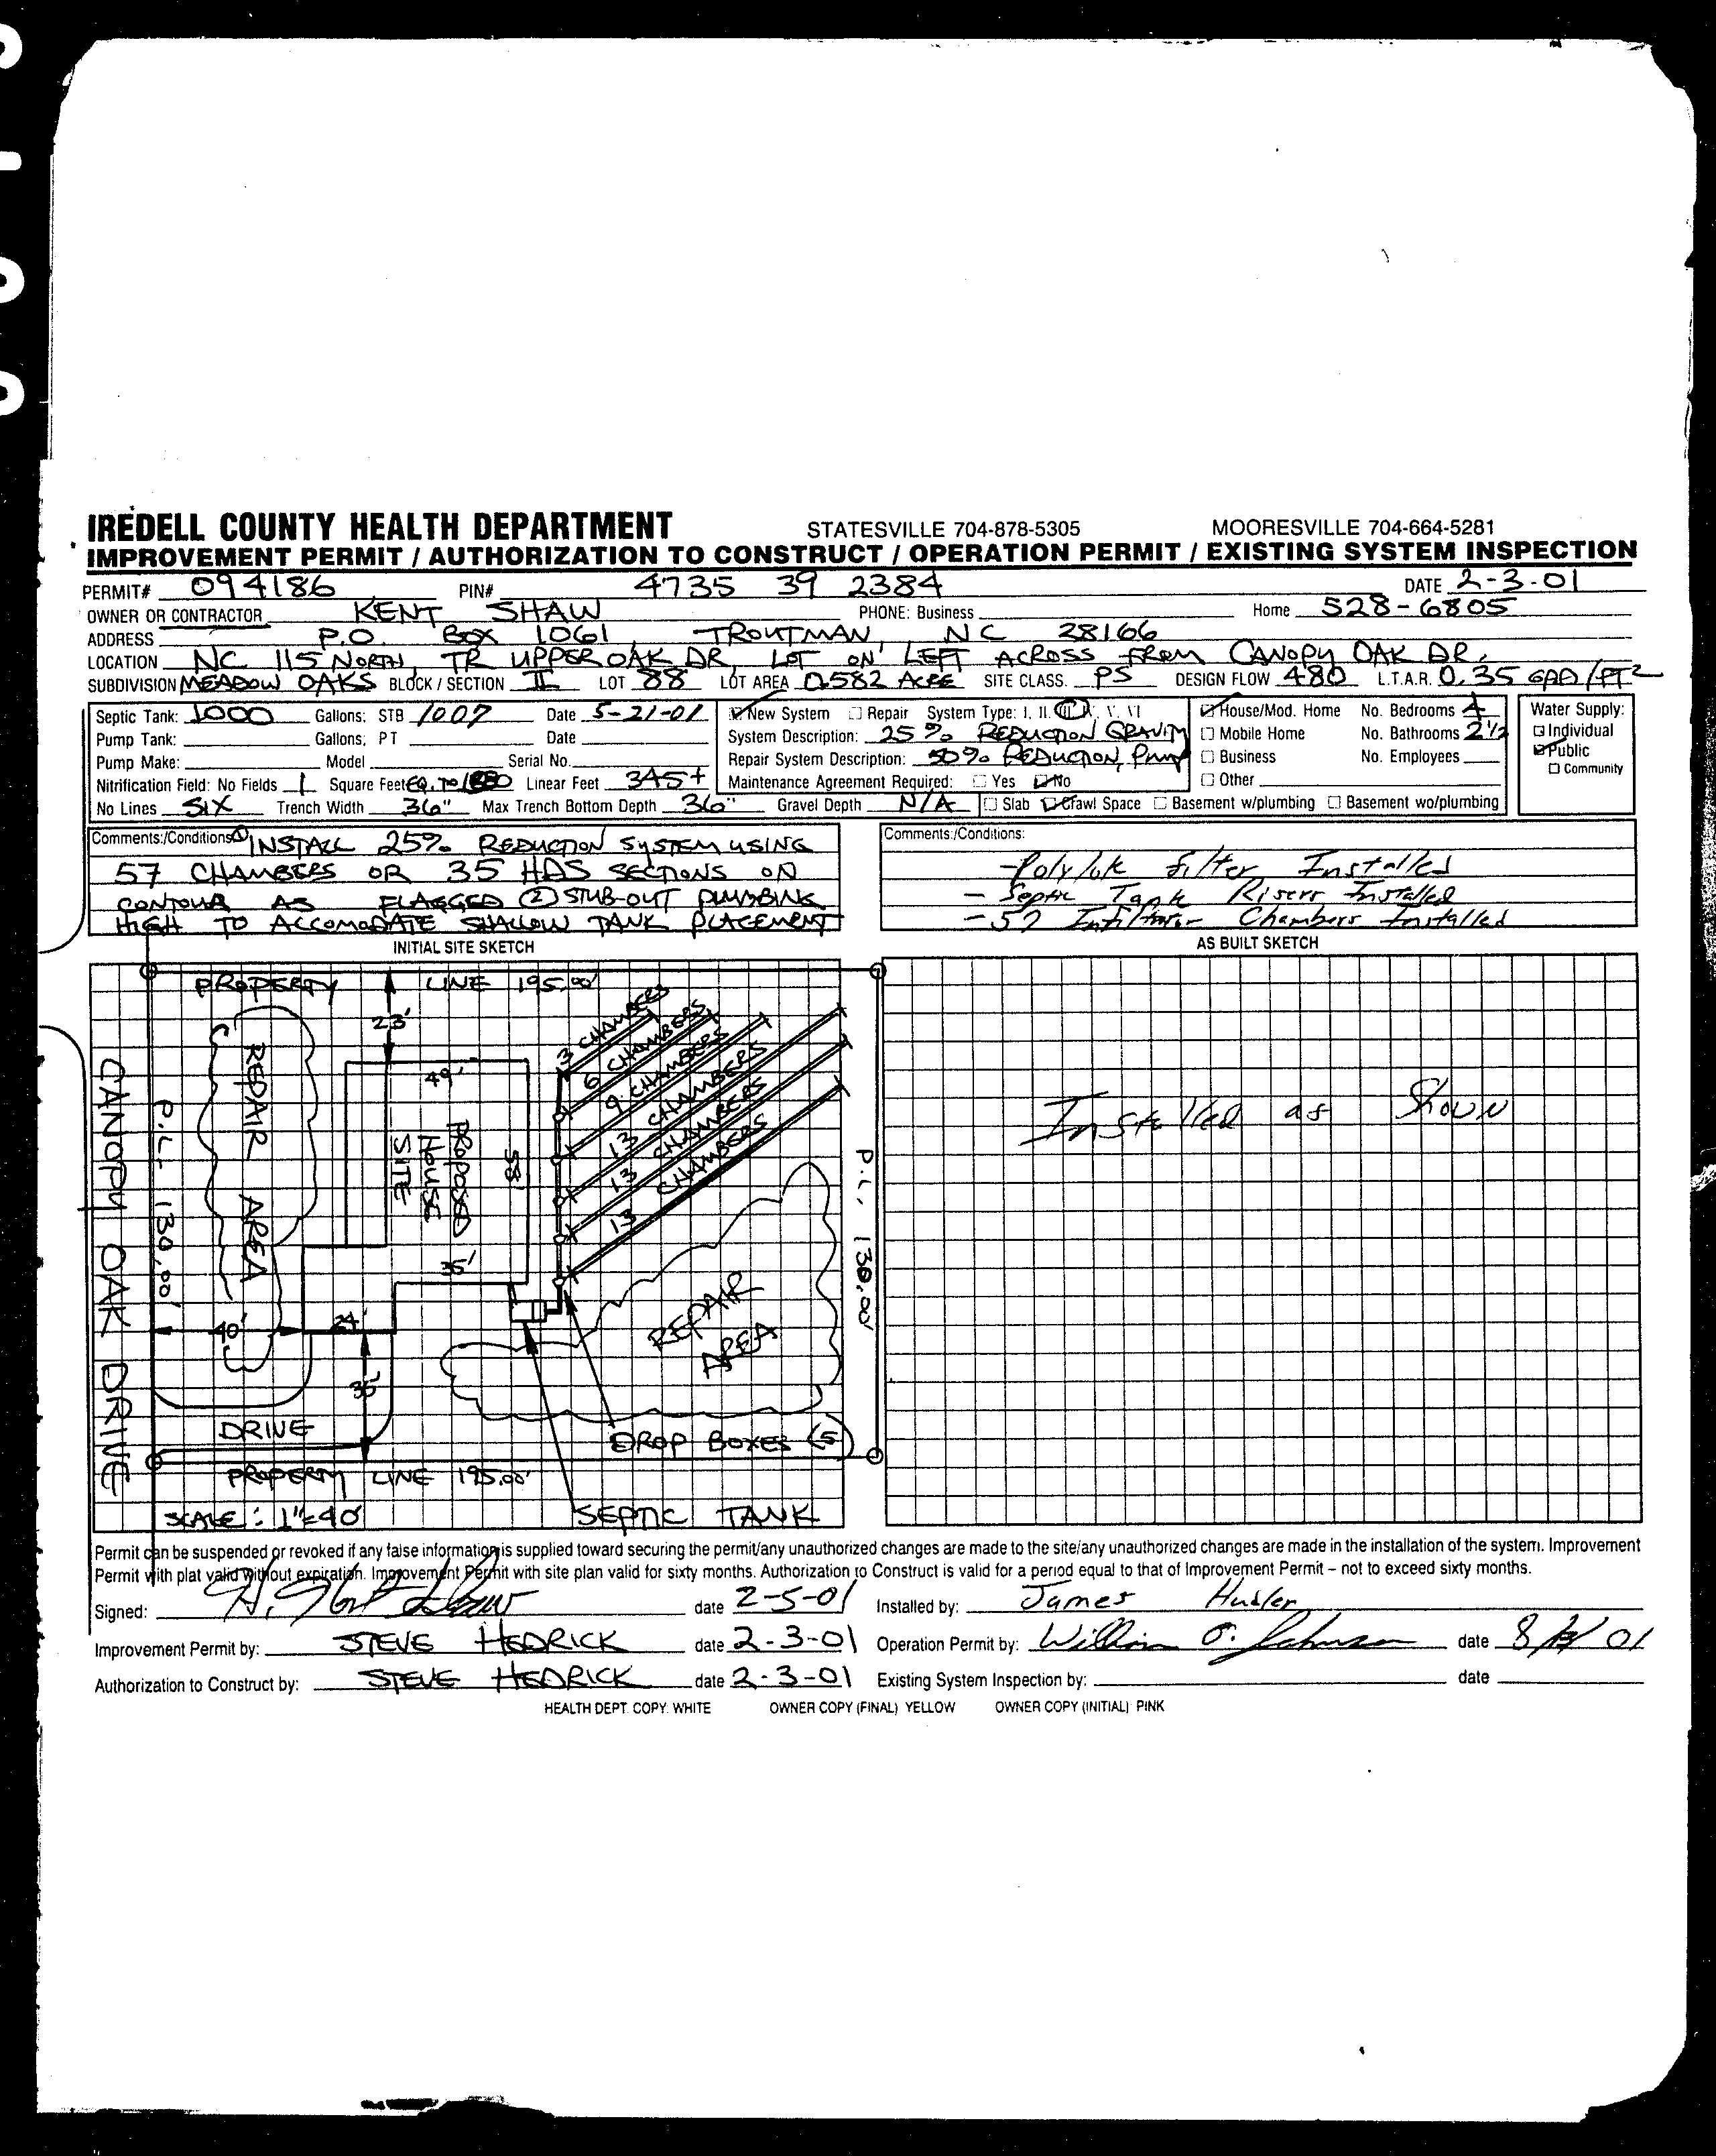 IREDELL COUNTY HEALTH DEPARTMENT STATESVILLE 704-878-5305 MOORESVILLE 704-664-5281
IMPROVEMENT PERMIT / AUTHORIZATION TO CONSTRUCT / OPERATION PERMIT / EXISTING SYSTEM INSPECTION
PERMIT# 094186 PIN# 4735 39 2384 DATE 2-3-01
OWNER OR CONTRACTOR KENT SHAW PHONE: Business Home 528-6805
ADDRESS P.O. BOX 1061, TROUTMAN, NC 28166
LOCATION NC 115 NORTH, TR UPPER OAK DR, LOT ON LEFT ACROSS FROM CANOPY OAK DR.
SUBDIVISION MEADOW OAKS BLOCK / SECTION II LOT 88 LOT AREA 0.582 ACRE SITE CLASS. PS DESIGN FLOW 480 L.T.A.R. 0.35 GPD/FT2
Septic Tank: 1000 Gallons: STB 1007 Date 5-21-01 New System Repair System Type: I, II, III, V, VI House/Mod. Home No. Bedrooms 4 Water Supply:
Pump Tank: Gallons: PT Date System Description: 25% REDUCTION GRAVITY Mobile Home No. Bathrooms 2 1/2 Individual
Pump Make: Model Serial No. Repair System Description: 50% REDUCTION, PUMP Business No. Employees Public
Nitrification Field: No Fields 1 Square Feet EQ. TO Linear Feet 345+ Maintenance Agreement Required: Yes No Other Community
No Lines SIX Trench Width 36" Max Trench Bottom Depth 36" Gravel Depth N/A Slab Crawl Space Basement w/plumbing Basement wo/plumbing
Comments:/Conditions: ① INSTALL 25% REDUCTION SYSTEM USING
57 CHAMBERS OR 35 HDS SECTIONS ON
CONTOUR AS FLAGGED ② STUB-OUT PLUMBING
HIGH TO ACCOMODATE SHALLOW TANK PLACEMENT
Comments:/Conditions:
- Polylok filter Installed
- Septic Tank Risers Installed
- 57 Infiltrator Chambers Installed
INITIAL SITE SKETCH
AS BUILT SKETCH
PROPERTY LINE 195.00'
23'
3 CHAMBERS
6 CHAMBERS
9 CHAMBERS
13 CHAMBERS
13 CHAMBERS
13 CHAMBERS
49'
CANOPY OAK DRIVE
P.L. 130.00'
REPAIR AREA
PROPOSED HOUSE SITE
58'
35'
P.L. 130.00'
40'
24'
35'
REPAIR AREA
DRIVE
DROP BOXES (5)
PROPERTY LINE 195.00'
SCALE: 1"=40'
SEPTIC TANK
Installed as Shown
Permit can be suspended or revoked if any false information is supplied toward securing the permit/any unauthorized changes are made to the site/any unauthorized changes are made in the installation of the system. Improvement
Permit with plat valid without expiration. Improvement Permit with site plan valid for sixty months. Authorization to Construct is valid for a period equal to that of Improvement Permit – not to exceed sixty months.
Signed: date 2-5-01 Installed by: James
Improvement Permit by: STEVE HEDRICK date 2-3-01 Operation Permit by: William O. Johnson date 8/ /01
Authorization to Construct by: STEVE HEDRICK date 2-3-01 Existing System Inspection by: date
HEALTH DEPT. COPY: WHITE OWNER COPY (FINAL) YELLOW OWNER COPY (INITIAL) PINK